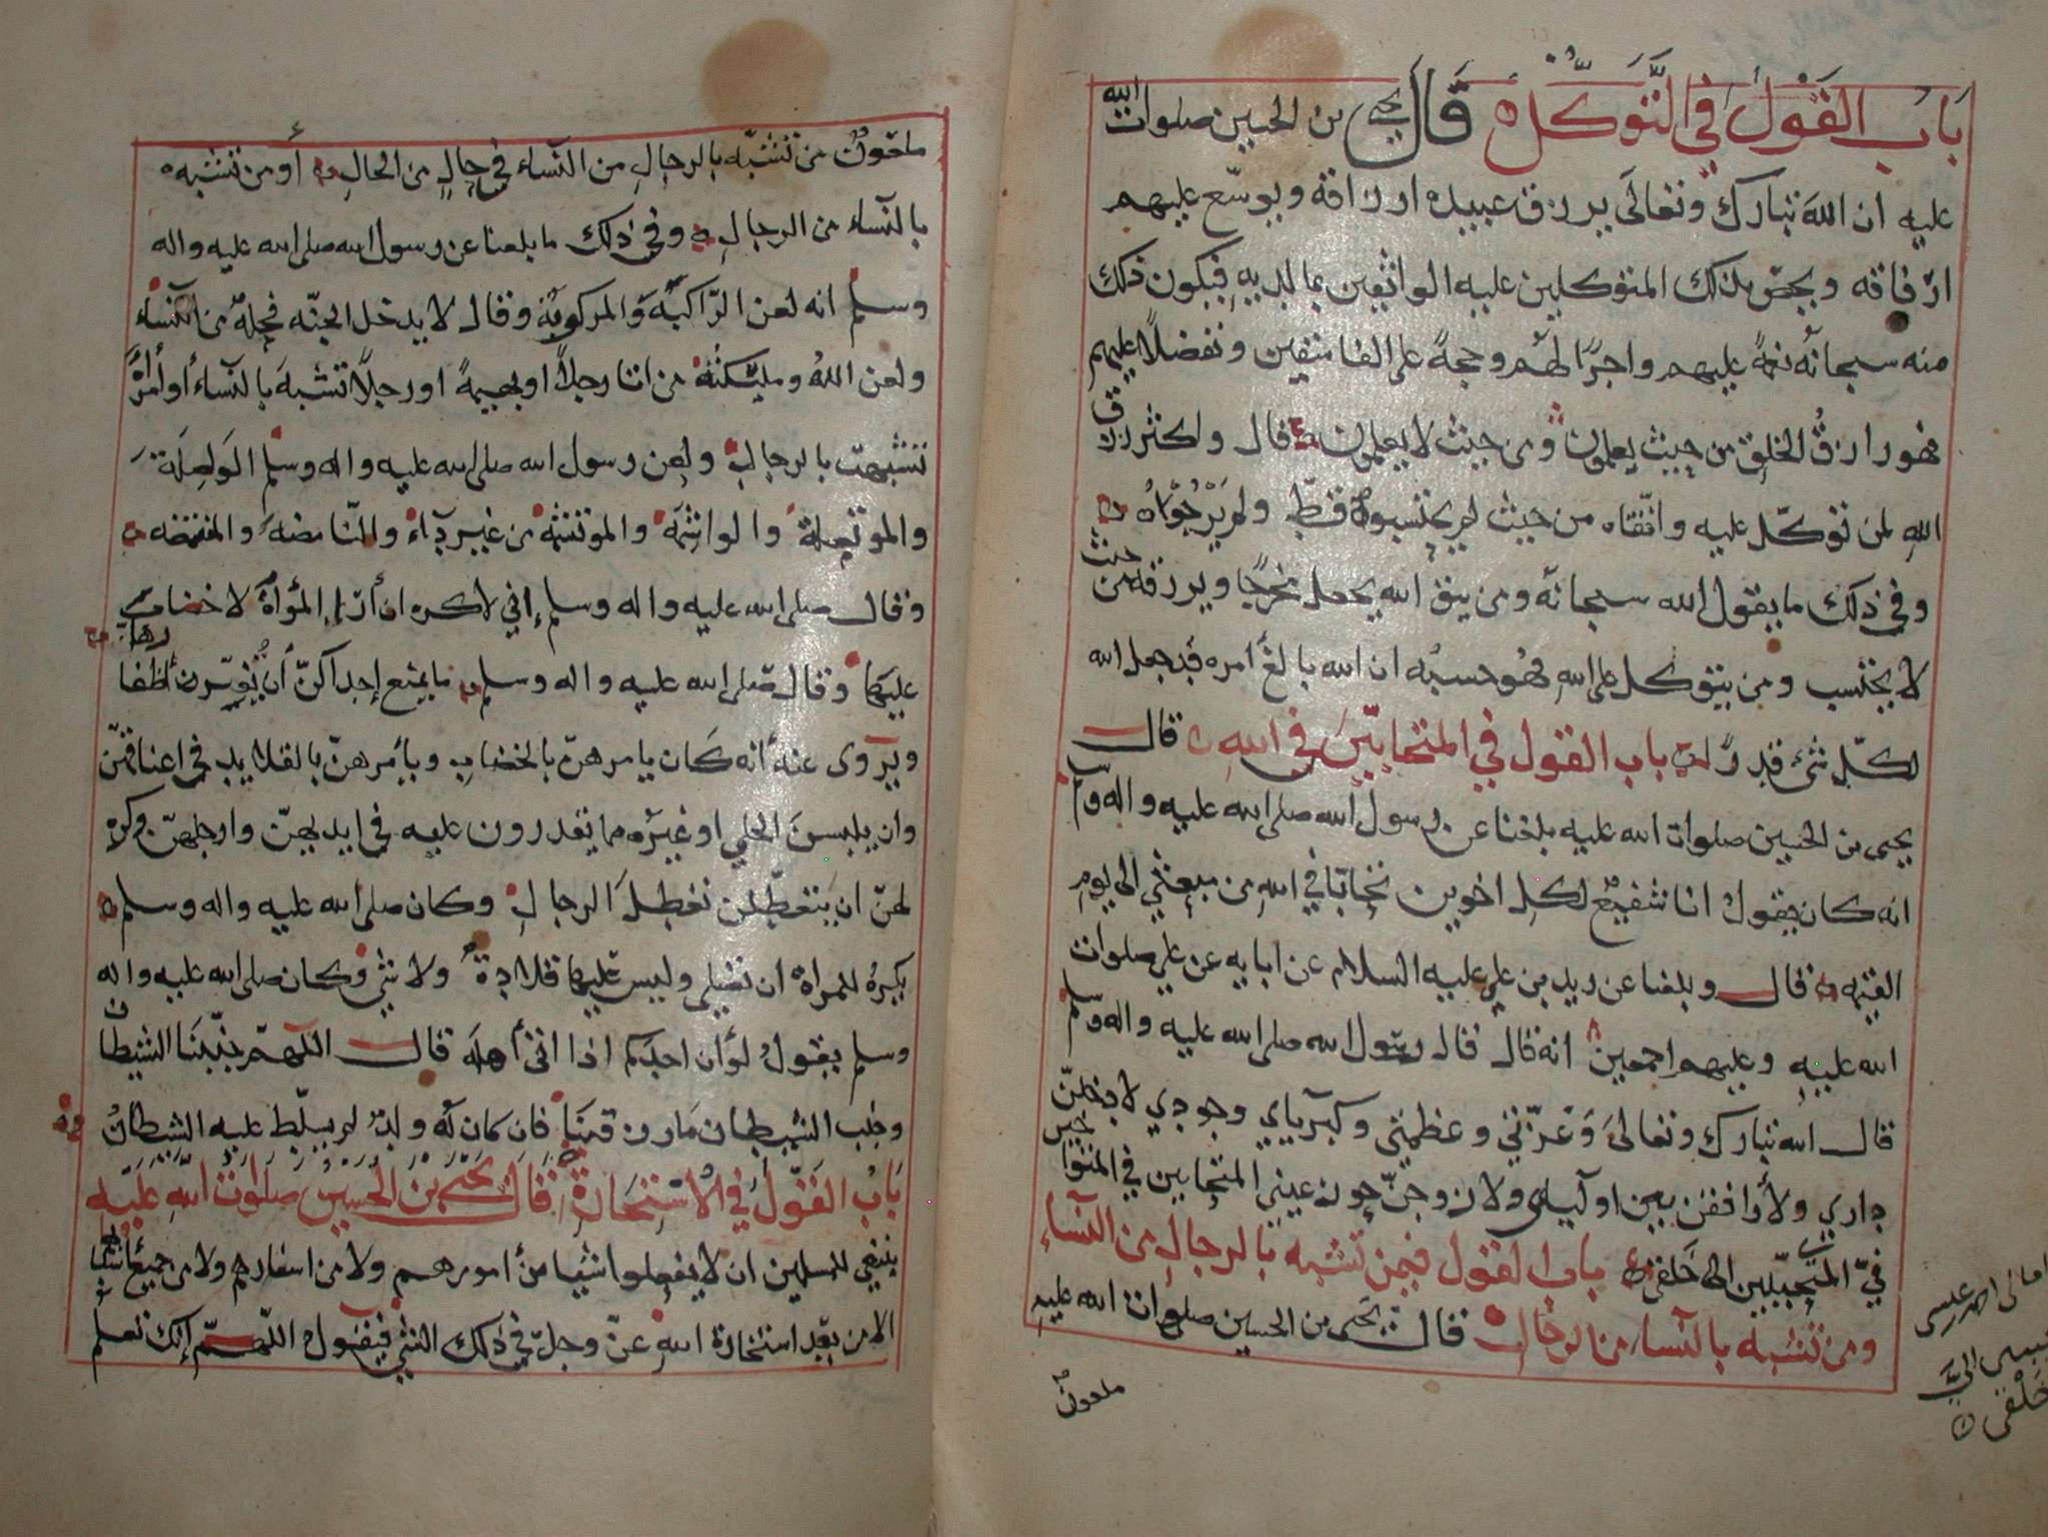 باب القول في التوكل قال يحيى بن الحسين صلوات الله
عليه ان الله تبارك وتعالى يرزق عبيده ارزاقه ويوسع عليهم
ارفاقه ويخص بذلك المتوكلين عليه الواثقين بما لديه فيكون ذلك
منه سبحانه نعمة عليهم واجرا لهم وحجة على الفاسقين وتفضلا عليهم
فهو رازق الخلق من حيث يعلمون ومن حيث لا يعلمون قال واكثر رزق
الله لمن توكل عليه واتقاه من حيث لم يحتسبوه قط ولم يرجوه
وفي ذلك ما يقول الله سبحانه ومن يتق الله يجعل له مخرجا ويرزقه من حيث
لا يحتسب ومن يتوكل على الله فهو حسبه ان الله بالغ امره قد جعل الله
لكل شيء قدرا باب القول في المتحابين في الله قال
يحيى بن الحسين صلوات الله عليه بلغنا عن رسول الله صلى الله عليه واله وسلم
انه كان يقول انا شفيع لكل اخوين تحابا في الله من مبعثي الى يوم
القيمه قال وبلغنا عن زيد بن علي عليه السلام عن ابايه عن علي صلوات
الله عليه وعليهم اجمعين انه قال قال رسول الله صلى الله عليه واله وسلم
قال الله تبارك وتعالى وعزتي وعظمتي وكبريايي وجودي لادخلن
داري ولأرافقن بين اوليايي ولازوجن حور عيني المتحابين في المتواخين
في المتحببين الى خلقي باب القول فيمن تشبه بالرجال من النساء
ومن تشبه بالنساء من الرجال قال يحيى بن الحسين صلوات الله عليه
ملعون
ملعون من تشبه بالرجال من النساء في حال من الحال أو من تشبه
بالنساء من الرجال وفي ذلك ما بلغنا عن رسول الله صلى الله عليه واله
وسلم انه لعن الراكبة والمركوبة وقال لا يدخل الجنه فحلة من النساء
ولعن الله ومليكته من اتا رجلا او بهيمة او رجلا تشبه بالنساء أو امرأة
تشبهت بالرجال ولعن رسول الله صلى الله عليه واله وسلم الواصلة
والموتصلة والواشمة والموتشمة من غير داء والنامصه والمتنمصه
وقال صلى الله عليه واله وسلم إني لاكره ان أرا المرأة لا خضاب
عليها وقال صلى الله عليه واله وسلم ما يمنع إحداكن أن تغير أظفارها
ويروى عنه أنه كان يامرهن بالخضاب ويأمرهن بالقلايد في اعناقهن
وان يلبسن الحلي او غيره مما يقدرون عليه في ايديهن وارجلهن وكره
لهن ان يتعطلن تعطل الرجال وكان صلى الله عليه واله وسلم
يكره للمراة ان تصلي وليس عليها قلادة ولا شي وكان صلى الله عليه واله
وسلم يقول لو أن احدكم اذا اتى أهله قال اللهم جنبنا الشيطان
وجنب الشيطان ما رزقتنا فان كان له ولد لم يسلط عليه الشيطان
باب القول في الاستخارة قال يحيى بن الحسين صلوات الله عليه
ينبغي للمسلمين ان لا يفعلوا شيا من أمورهم ولا من اسفارهم ولا من جميع أسبابهم
الا من بعد استخارة الله عز وجل في ذلك الشي فيقول اللهم إنك تعلم